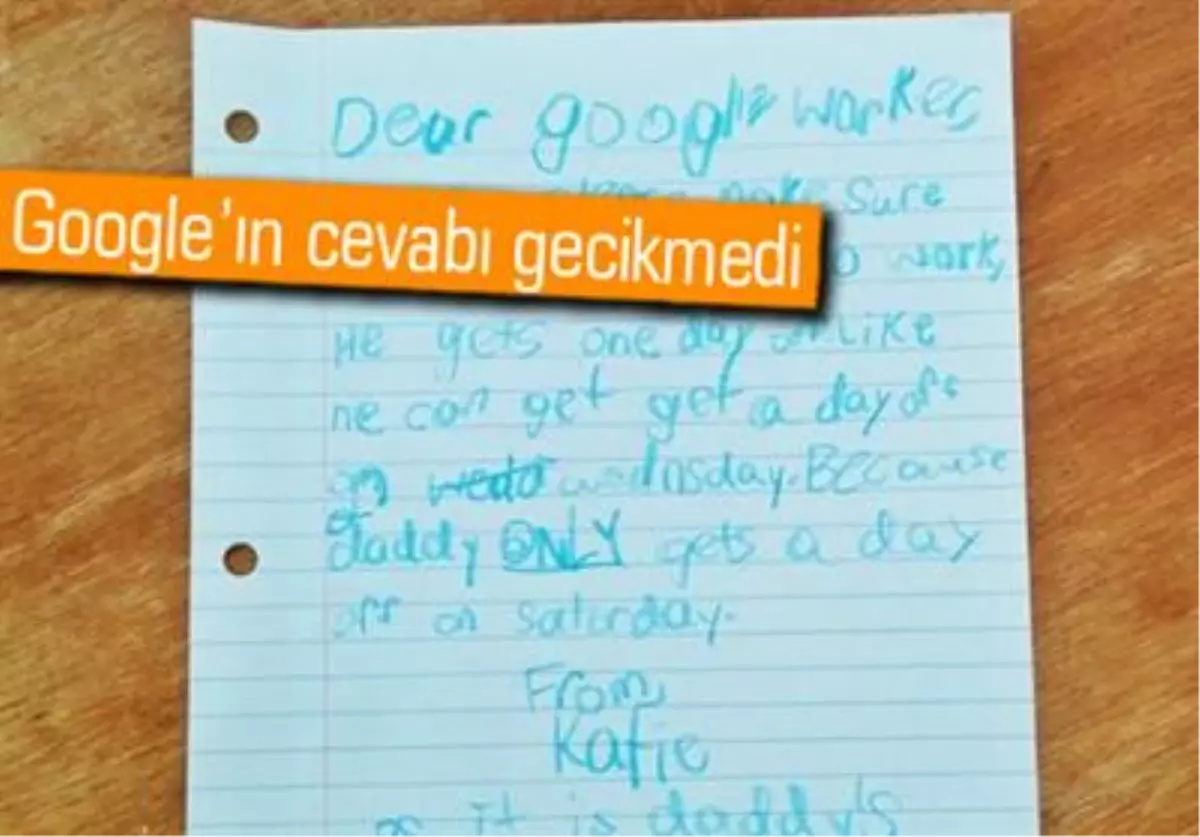 Dear google worker,
make Sure
Google'ın cevabı gecikmedi
work,
He gets one day like
he can get get a day off
on wednsday. BECause
daddy ONLY gets a day
off on saturday.
From,
Katie
it is daddy's